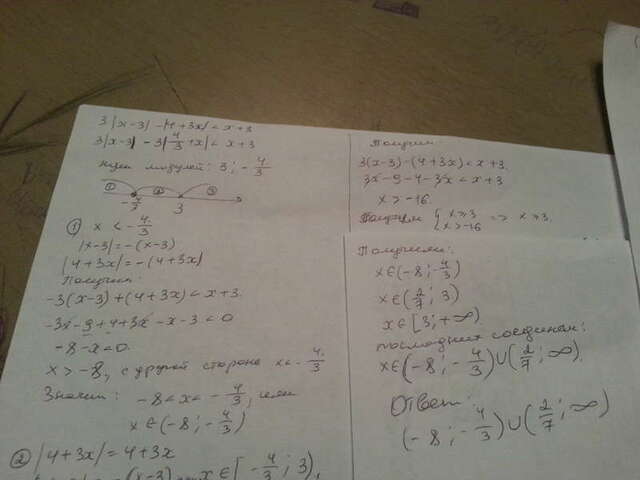 3|x-3| - |4+3x| < x+3
3|x-3| - 3|4/3+x| < x+3
нули модулей: 3; -4/3
① ② ③
-4/3 3
① x < -4/3
|x-3| = -(x-3)
|4+3x| = -(4+3x)
Получим:
-3(x-3)+(4+3x) < x+3
-3x-9+4+3x-x-3<0
-8-x<0
x > -8, с другой стороны x < -4/3
Значит: -8 < x < -4/3, или
x ∈ (-8; -4/3)
② |4+3x| = 4+3x
-(x-3) x ∈ [-4/3; 3),
Получим:
3(x-3)-(4+3x) < x+3.
3x-9-4-3x < x+3
x > -16.
Получим { x ≥ 3 => x ≥ 3.
x > -16
Получили:
x ∈ (-8; -4/3)
x ∈ (2/7; 3)
x ∈ [3; +∞)
последних соединим:
x ∈ (-8; -4/3) ∪ (2/7; ∞).
Ответ:
(-8; -4/3) ∪ (2/7; ∞)